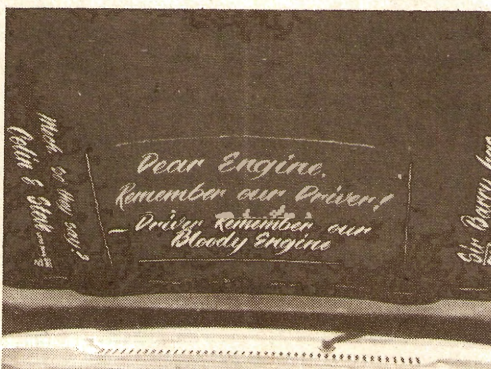 Dear Engine,
Remember our Driver!
– Driver Remember our
Bloody Engine
Colin &
Sir Barry